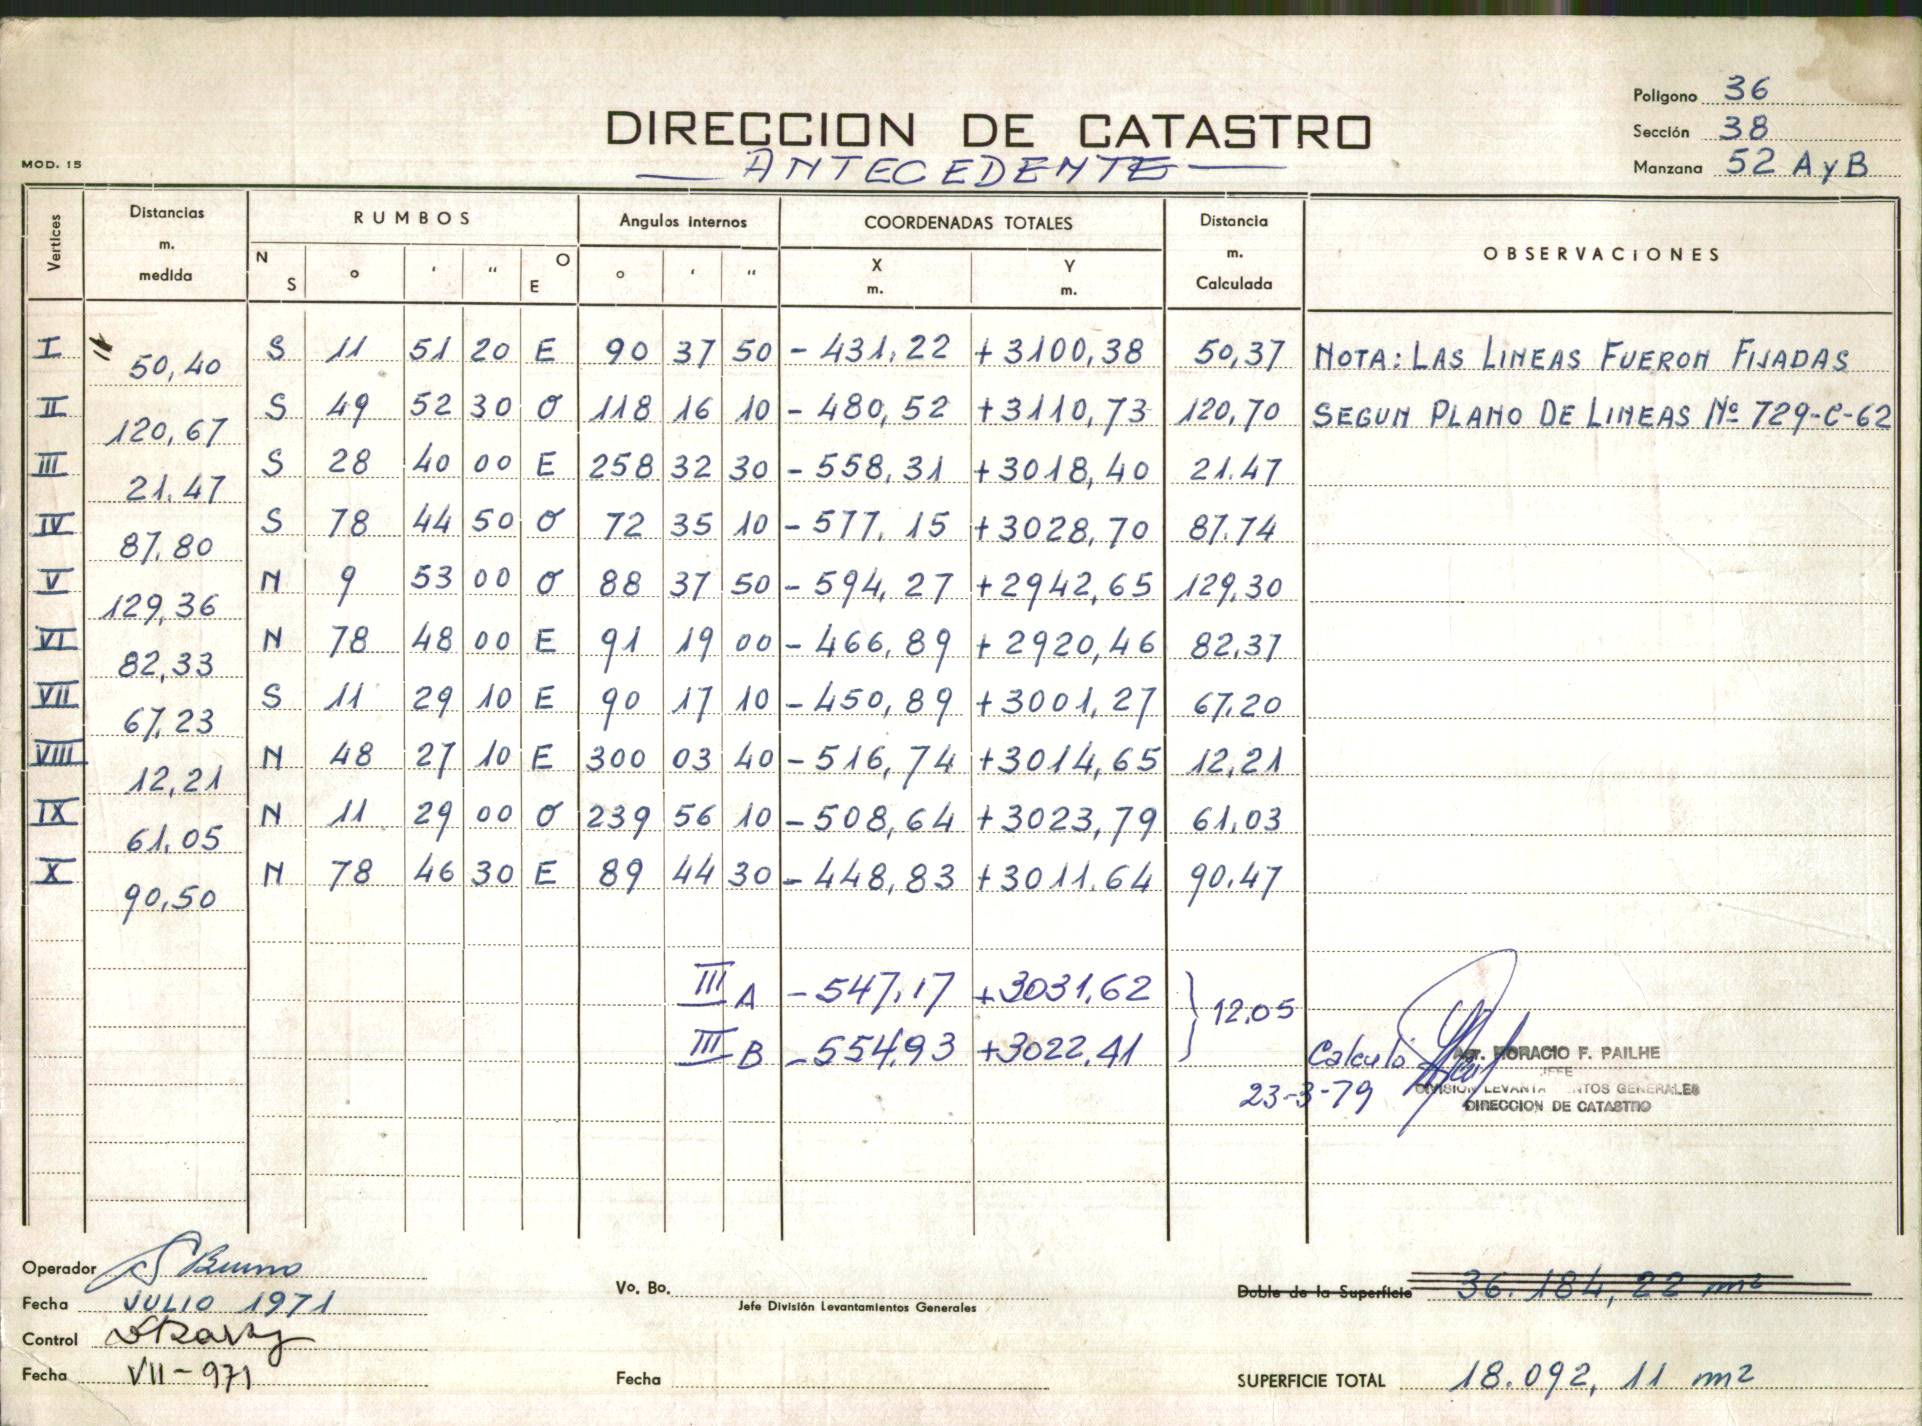 Polígono 36
DIRECCION DE CATASTRO
Sección 38
ANTECEDENTE
MOD. 15
Manzana 52 A y B
Vertices Distancias m. medida RUMBOS Angulos internos COORDENADAS TOTALES Distancia m. Calculada OBSERVACIONES
N S ° ' " O E ° ' " X m. Y m.
I 50,40 S 11 51 20 E 90 37 50 - 431,22 + 3100,38 50,37 NOTA: LAS LINEAS FUERON FIJADAS
II 120,67 S 49 52 30 O 118 16 10 - 480,52 + 3110,73 120,70 SEGUN PLANO DE LINEAS Nº 729-C-62
III 21.47 S 28 40 00 E 258 32 30 - 558,31 + 3018,40 21.47
IV 87.80 S 78 44 50 O 72 35 10 - 577,15 + 3028,70 87.74
V 129,36 N 9 53 00 O 88 37 50 - 594,27 + 2942,65 129,30
VI 82,33 N 78 48 00 E 91 19 00 - 466,89 + 2920,46 82,37
VII 67,23 S 11 29 10 E 90 17 10 - 450,89 + 3001,27 67,20
VIII 12,21 N 48 27 10 E 300 03 40 - 516,74 + 3014,65 12,21
IX 61,05 N 11 29 00 O 239 56 10 - 508,64 + 3023,79 61,03
X 90,50 N 78 46 30 E 89 44 30 - 448,83 + 3011.64 90.47
III A - 547,17 + 3031,62
12.05
III B - 554,93 + 3022,41
Calculó
HORACIO F. PAILHE
JEFE
23-3-79
DIVISION GENERALES
DIRECCION DE CATASTRO
Operador Bruno
Vo. Bo.
Jefe División Levantamientos Generales
Doble de la Superficie 36.184,22 m²
Fecha JULIO 1971
Control
Fecha VII-971
Fecha
SUPERFICIE TOTAL 18.092,11 m²